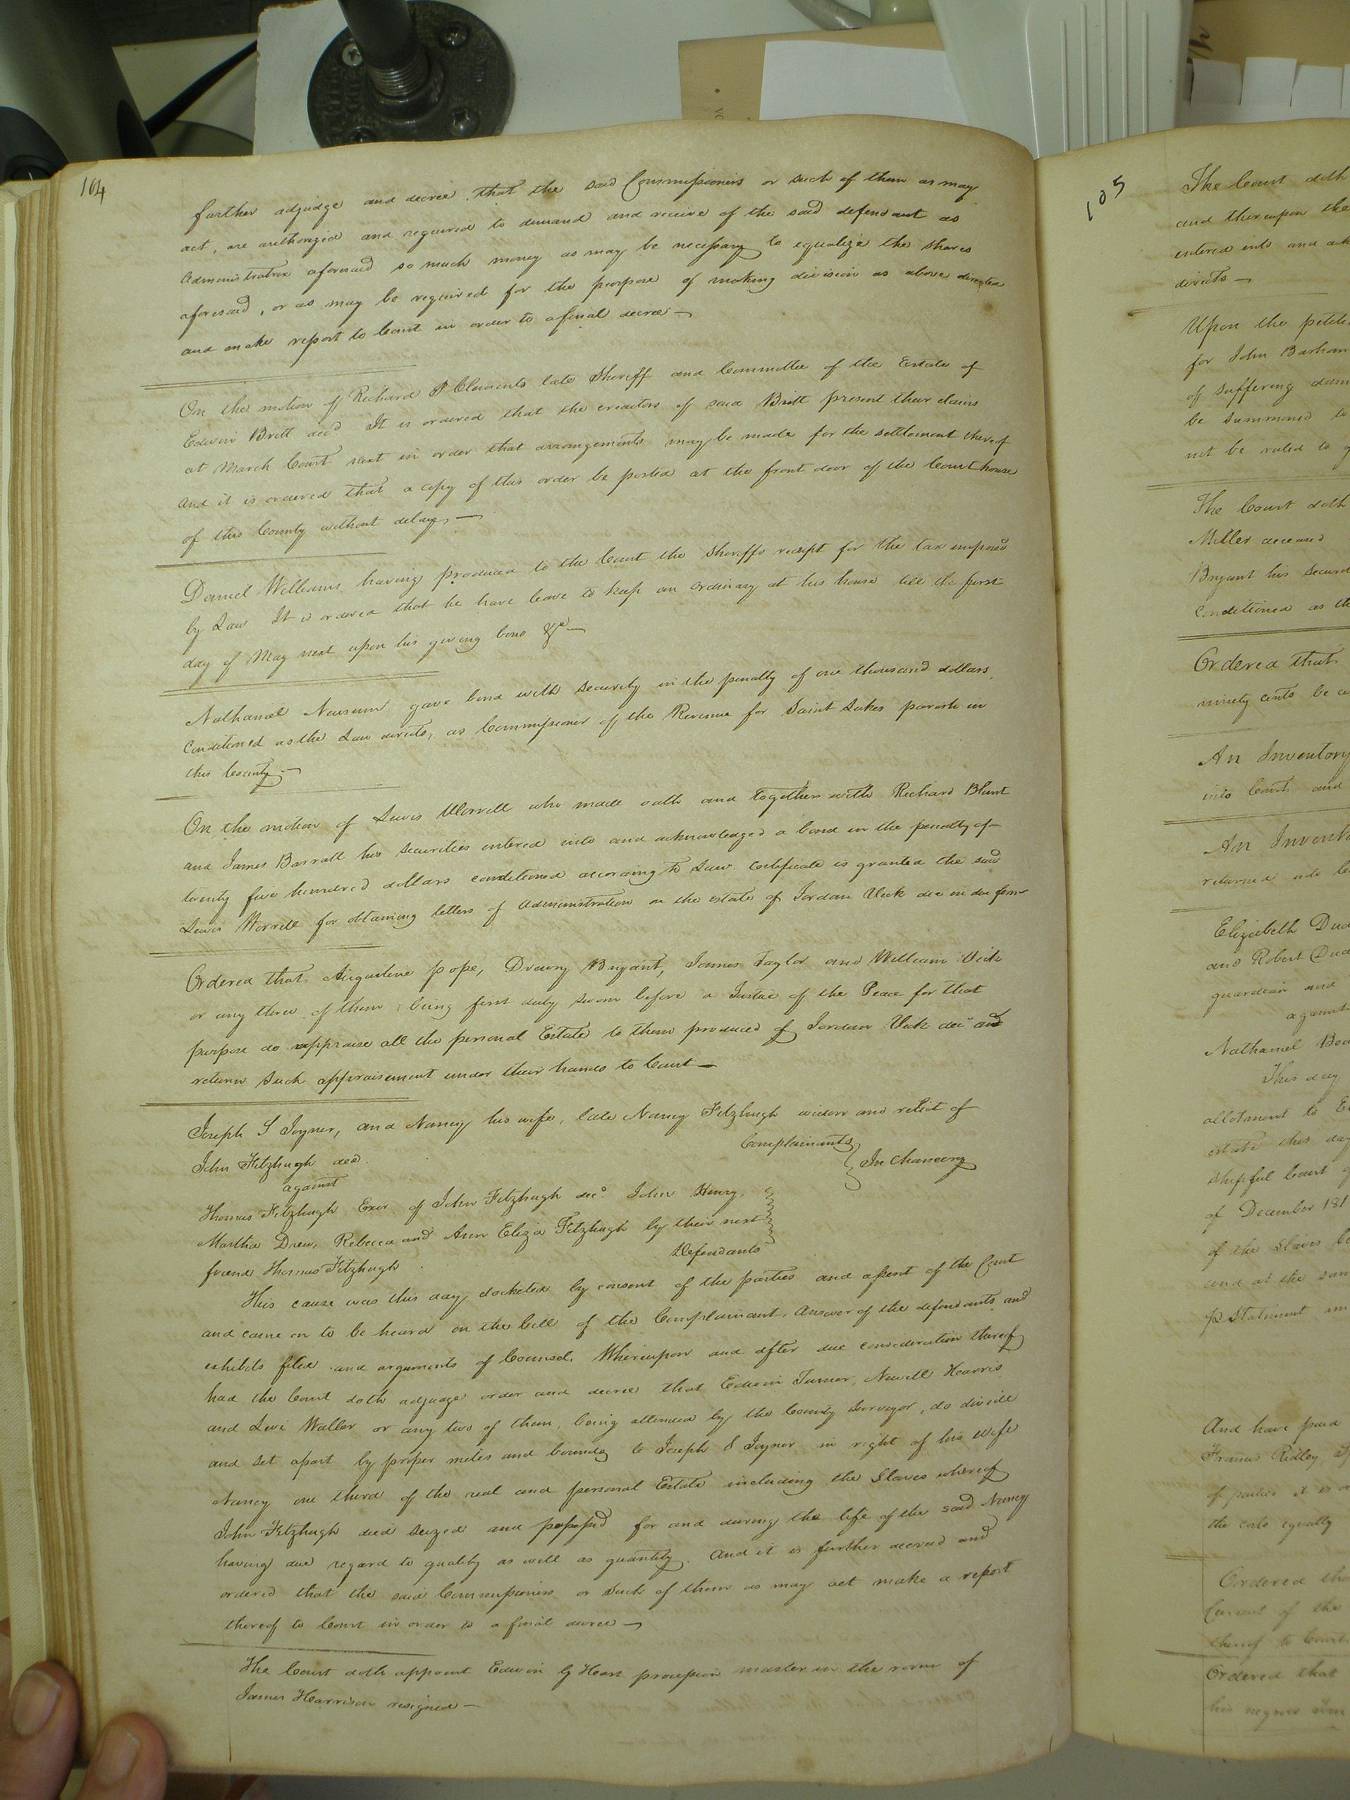 104
further adjudge and decree that the said Commissioners or such of them as may
act, are authorized and required to demand and receive of the said defendant as
Administratrix aforesaid so much money as may be necessary to equalize the shares
aforesaid, or as may be required for the purpose of making division as above directed
and make report to Court in order to a final decree —
On the motion of Richard P Clements late Sheriff and Committee of the Estate of
Edwin Britt decd It is ordered that the creditors of said Britt present their claims
at March Court next in order that arrangements may be made for the settlement thereof
and it is ordered that a copy of this order be posted at the front door of the Courthouse
of this County without delay, —
Daniel Williams having produced to the Court the Sheriffs receipt for the tax imposed
by Law It is ordered that he have leave to keep an ordinary at his house till the first
day of May next upon his giving bond &c —
Nathaniel Newsum gave bond with security in the penalty of one thousand dollars,
conditioned as the Law directs, as Commissioner of the Revenue for Saint Lukes parish in
this County —
On the motion of Lewis Worrell who made oath and together with Richard Blunt
and James Barrott his securities entered into and acknowledged a bond in the penalty of
twenty five hundred dollars conditioned according to Law certificate is granted the said
Lewis Worrell for obtaining letters of administration on the estate of Jordan Vick dec in due form
Ordered that Augustine pope, Drewry Bryant, James Taylor and William Vick
or any three of them being first duly sworn before a Justice of the Peace for that
purpose do appraise all the personal Estate to them produced of Jordan Vick decd and
return such appraisement under their hands to Court —
Joseph S Joyner, and Nancy his wife, late Nancy Fitzhugh widow and relict of
John Fitzhugh decd Complainants
In Chancery
against
Thomas Fitzhugh Exor of John Fitzhugh decd John Henry,
Martha Drew, Rebecca and Ann Eliza Fitzhugh by their next
friend Thomas Fitzhugh Defendants
This cause was this day docketed by consent of the parties and assent of the Court
and came on to be heard on the bill of the Complainant, Answer of the defendants and
exhibits filed and arguments of Counsel, Whereupon and after due consideration thereof
had the Court doth adjudge order and decree that Edwin Turner, Newitt Harris
and Levi Waller or any two of them, being attended by the County Surveyor, do divide
and set apart by proper metes and bounds to Joseph S Joyner in right of his wife
Nancy one third of the real and personal Estate including the Slaves whereof
John Fitzhugh died seized and possessed for and during the life of the said Nancy
having due regard to quality as well as quantity. And it is further decreed and
ordered that the said Commissioners or such of them as may act make a report
thereof to Court in order to a final decree —
The Court doth appoint Edwin G Hart procession master in the room of
James Harrison resigned —
105
The Court doth
and thereupon the
entered into and ack
directs —
Upon the petiti
for John Barham
of suffering
be summoned to
not be ruled to
The Court doth
Miller deceased
Bryant his securi
Conditioned as th
Ordered that
ninety cents be
An Inventory
into Court and
An Invento
returned into
Elizabeth
and Robert
guardian and
against
Nathaniel
This day
allotment to
estate this day
of December 181
of the Slaves
and at the sam
Statement
And have paid
Francis Ridley
of parties it is
the costs equally
Ordered tha
of the
thereof to Court
Ordered that
his negroes